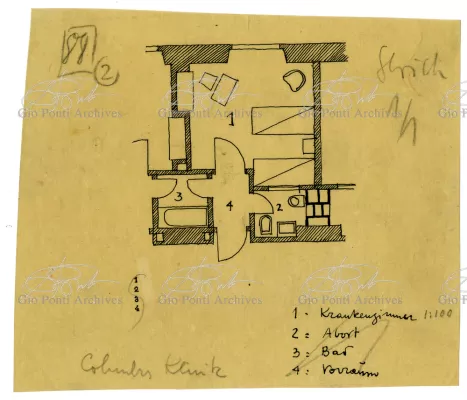 88
2
Strich
1/1
Gio Ponti Archives
Gio Ponti Archives
Gio Ponti Archives
Gio Ponti Archives
1
3
4
2
Gio Ponti Archives
Gio Ponti Archives
Gio Ponti Archives
Gio Ponti Archives
1
2
3
4
1 - Krankenzimmer 1:100
2 = Abort
3 : Bad
4 : Vorraum
Columbus Klinik